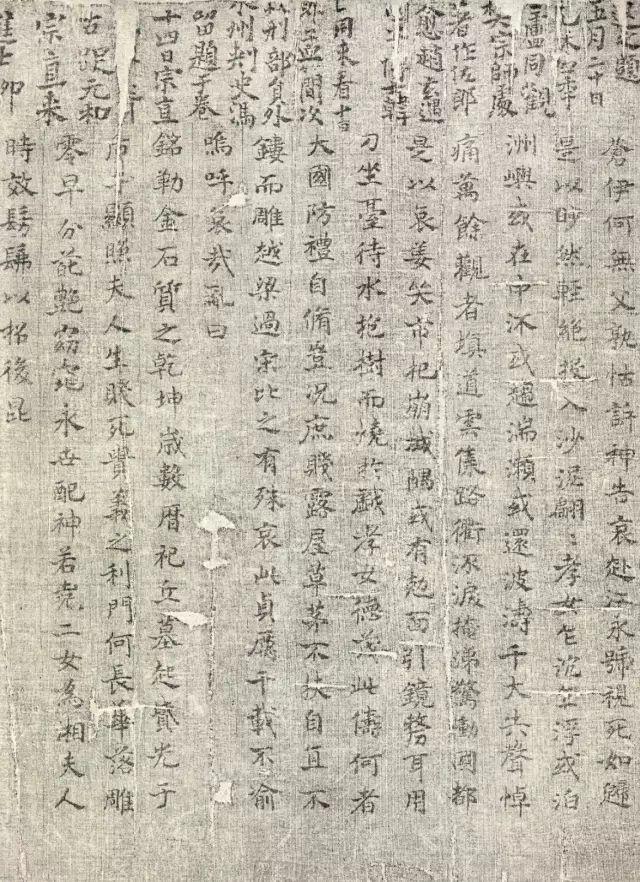 題
五月二十日
盧同觀
樊宗師處
著作佐郎
愈趙玄遇
韓
同來看十
刑部員外
州刺史馮
留題于卷
十四日宗直
元和
宗直来
進士
蒼伊何無父孰怙訴神告哀赴江永號視死如歸
是以眇然輕絕投入沙泥翩〻孝女乍沉乍浮或泊
洲嶼或在中流或趨湍瀨或還波濤千夫共聲悼
痛萬餘觀者填道雲集路衢流淚掩涕驚動國都
是以哀姜哭市杞崩城隅或有尅面引鏡剺耳用
刀坐臺待水抱樹而燒於戲孝女德茂此儔何者
大國防禮自脩豈況庶賤露屋草茅不扶自直不
鏤而雕越梁過宋比之有殊哀此貞厲千載不渝
嗚呼哀哉亂曰
銘勒金石質之乾坤歲數曆祀丘墓起墳光于
后土顯照夫人生賤死貴義之利門何長華落雕
零早分葩艷窈窕永世配神若堯二女為湘夫人
時效髣髴以招後昆